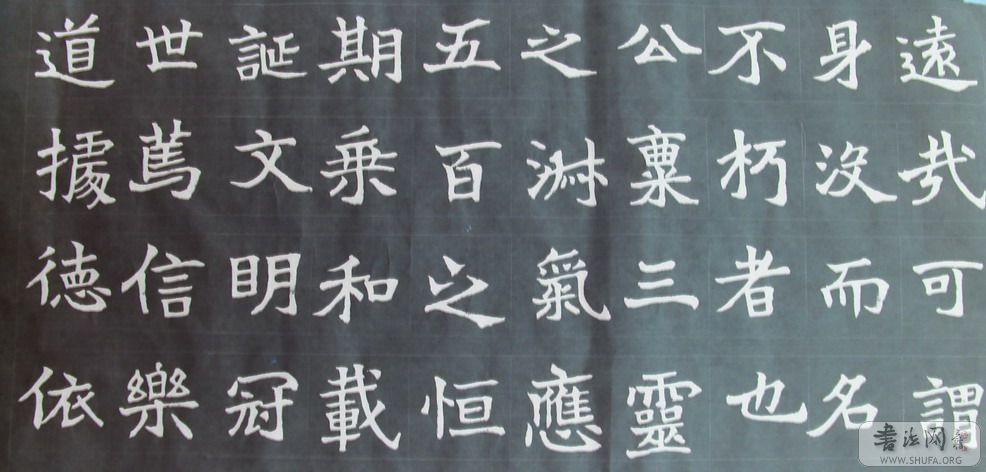 遠哉可謂
身没而名
不朽者也
公稟三靈
之淑氣應
五百之恒
期乗和載
誕文明冠
世篤信樂
道據徳依
書法网
WWW.SHUFA.ORG